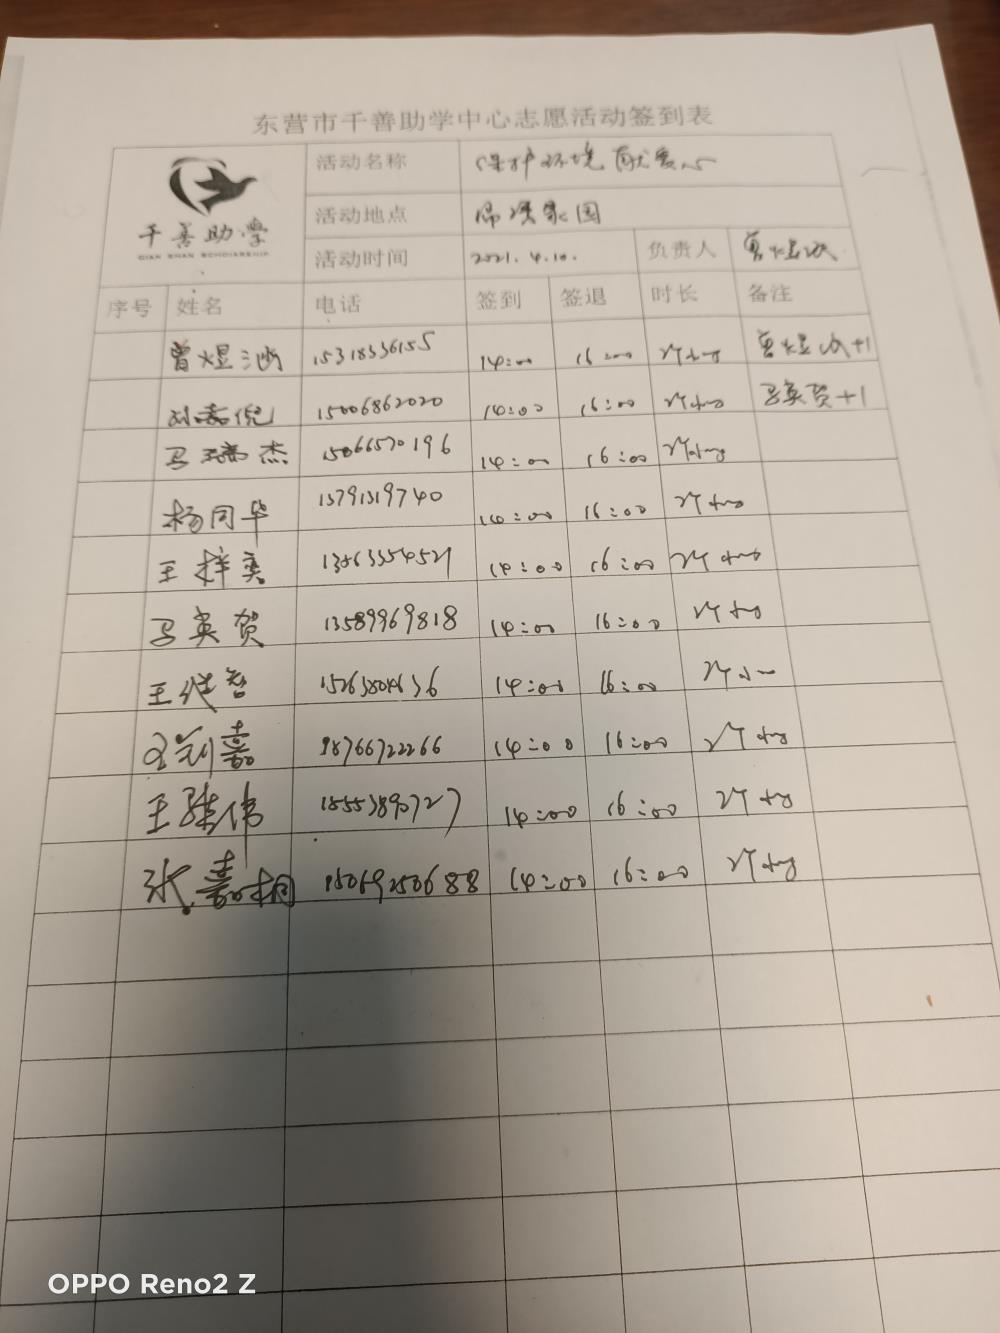 东营市千善助学中心志愿活动签到表
千善助学
QIAN SHAN SCHOLARSHIP
活动名称 保护环境 献爱心
活动地点 家园
活动时间 2021.4.10. 负责人 曾煜涵
序号 姓名 电话 签到 签退 时长 备注
曾煜涵 15318336155 14:00 16:00 2个小时 曾煜涵+1
刘嘉倪 15006862020 14:00 16:00 2个小时 马英贺+1
马瑞杰 15066570196 14:00 16:00 2个小时
杨同华 13791319740 14:00 16:00 2个小时
王梓奕 13563354521 14:00 16:00 2个小时
马英贺 13589969818 14:00 16:00 2个小时
王继智 14:00 16:00 2个小
嘉 18766722266 14:00 16:00 2个小时
王继伟 14:00 16:00 2个小时
张嘉桐 15069250688 14:00 16:00 2个小时
OPPO Reno2 Z